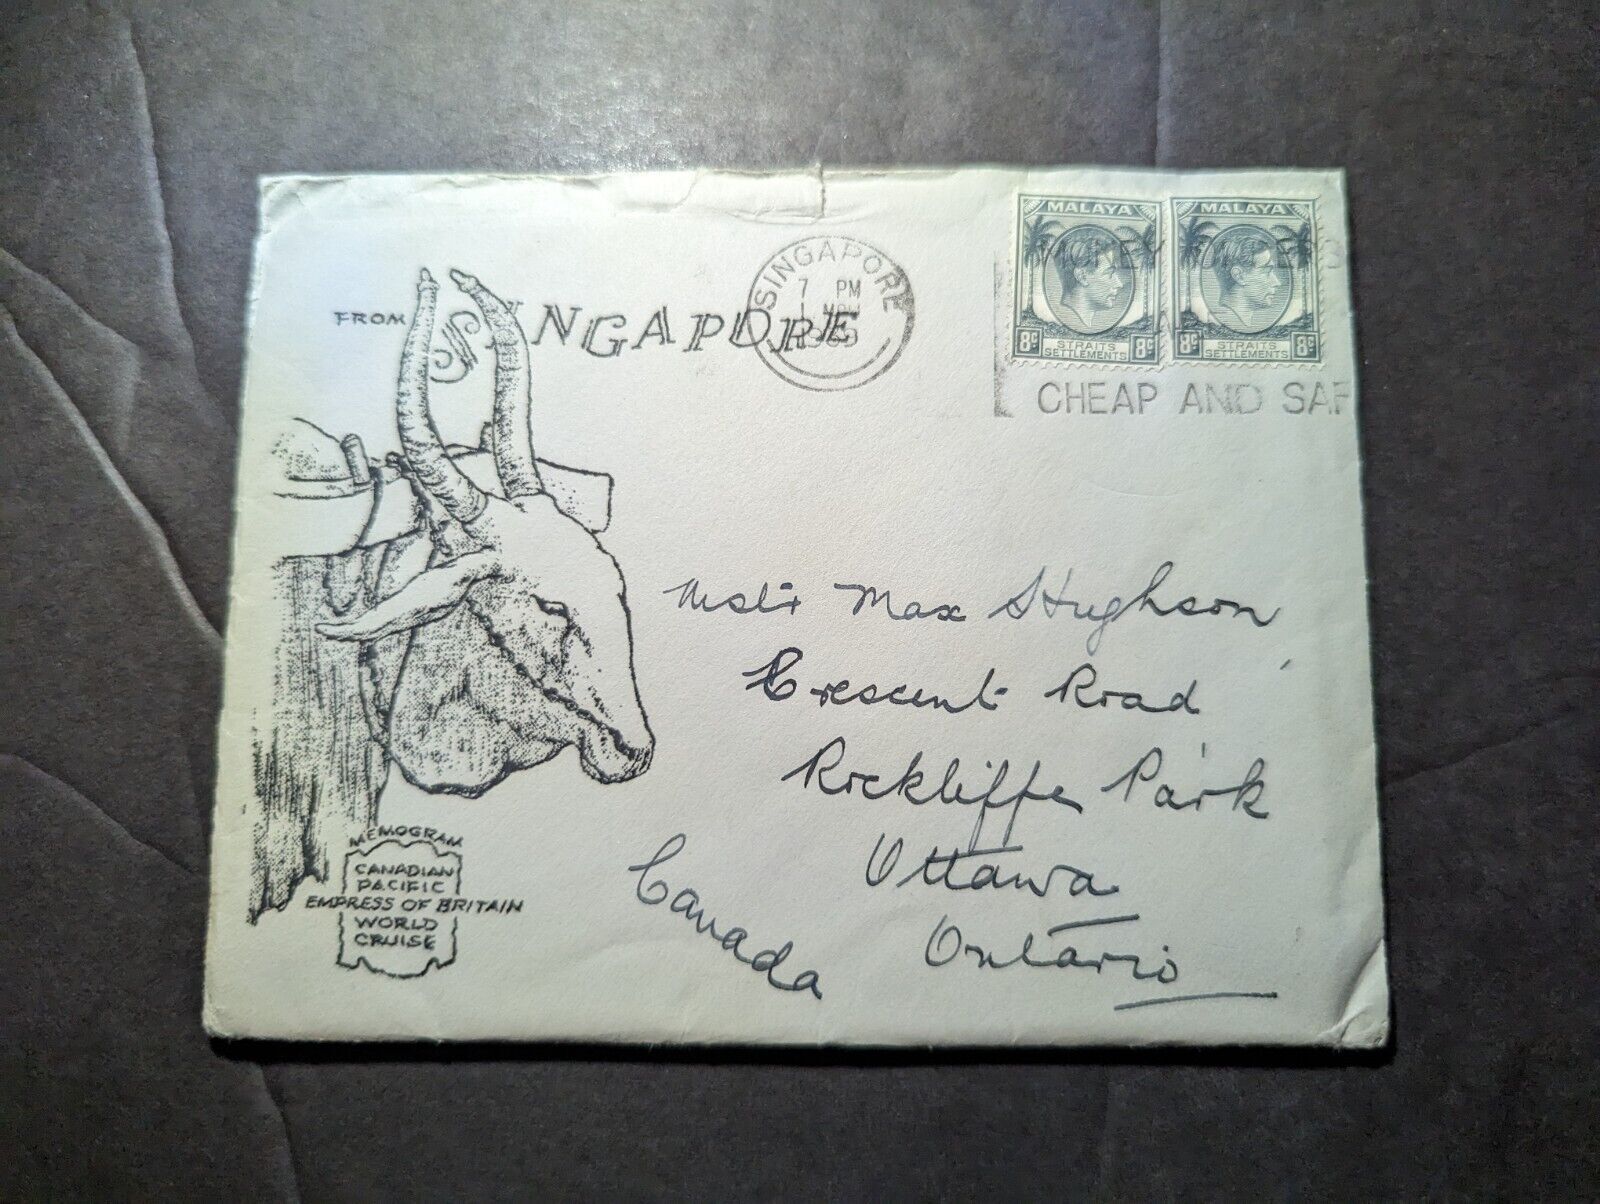 FROM SINGAPORE
SINGAPORE
7 PM
1
MALAYA
8c STRAITS SETTLEMENTS 8c
MALAYA
8c STRAITS SETTLEMENTS 8c
MONEY
CHEAP AND SAF
Max Hughson
Crescent Road
Rockliffe Park
Ottawa
Ontario
Canada
MEMOGRAM
CANADIAN
PACIFIC
EMPRESS OF BRITAIN
WORLD
CRUISE